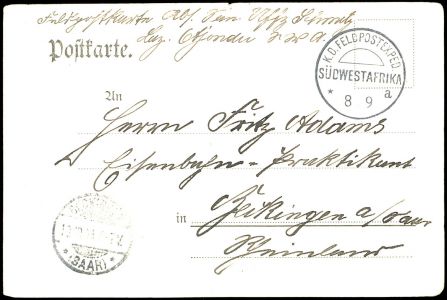 Feldpostkarte Abs. San. Uffz
Laz. Otjondu S. W. A.
Postkarte.
K.D. FELDPOSTEXPED.
SÜDWESTAFRIKA
* 8 9 a
An
Herrn Fritz Adams
Eisenbahn-Praktikant
in Beckingen a/Saar
Rheinland
* (SAAR) *